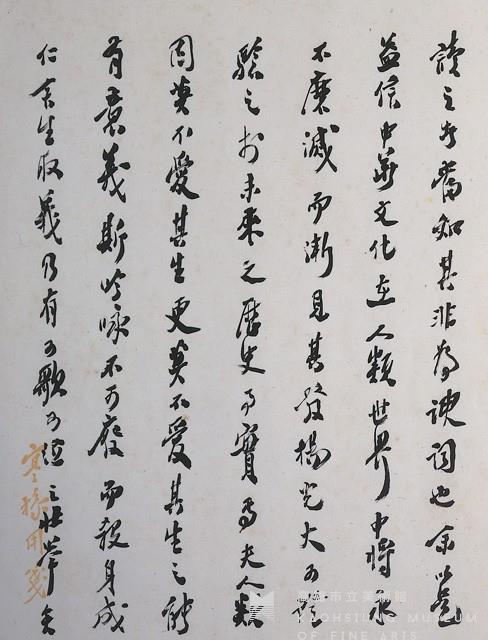 讀之者當知其非為諛詞也余以為
益信中華文化在人類世界中將永
不磨滅而漸見其發揚光大可
驗之於未來之歷史事實焉夫人類
固莫不愛其生更莫不愛其生之能
有意義斯吟詠不可廢而殺身成
仁舍生取義乃有可歌可泣之壯舉
用箋
高雄市立美術館
KAOHSIUNG MUSEUM
OF FINE ARTS